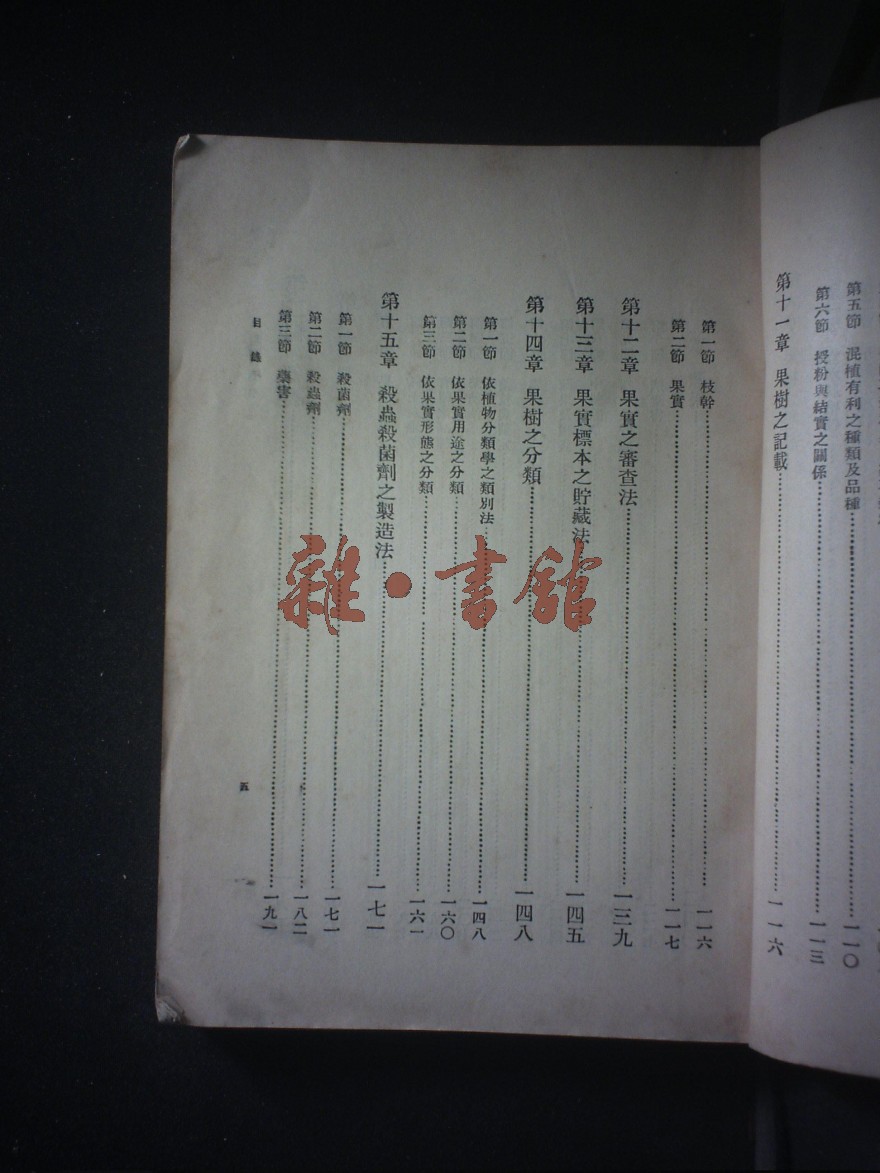 第五節　混植有利之種類及品種……一一〇
第六節　授粉與結實之關係……一一三
第十一章　果樹之記載……一一六
第一節　枝幹……一一六
第二節　果實……一一七
第十二章　果實之審查法……一三九
第十三章　果實標本之貯藏法……一四五
第十四章　果樹之分類……一四八
第一節　依植物分類學之類別法……一四八
第二節　依果實用途之分類……一六〇
第三節　依果實形態之分類……一六一
第十五章　殺蟲殺菌劑之製造法……一七一
第一節　殺菌劑……一七一
第二節　殺蟲劑……一八二
第三節　藥害……一九一
目錄
五
雜·書館